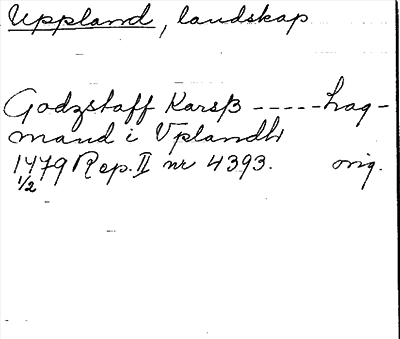 Uppland, landskap
Godzstaff Karsß ----- Lag-
mand i Vplandh
1479 Rep. II nr 4393. orig.
1/2